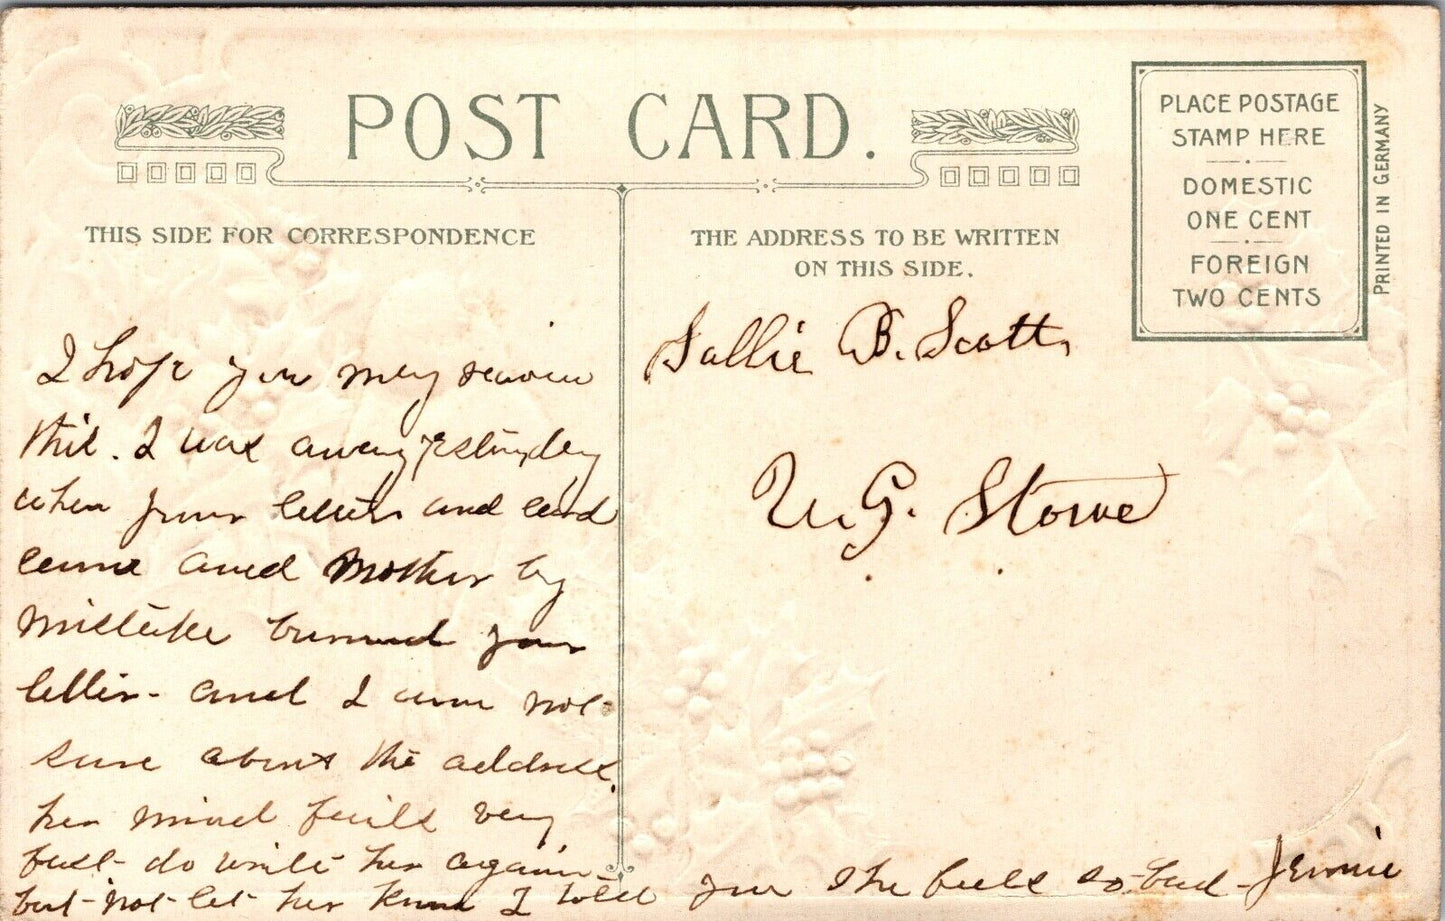 POST CARD.
THIS SIDE FOR CORRESPONDENCE
THE ADDRESS TO BE WRITTEN
ON THIS SIDE.
PLACE POSTAGE
STAMP HERE
DOMESTIC
ONE CENT
FOREIGN
TWO CENTS
PRINTED IN GERMANY
I hope you may receive
this. I was away yesterday
when your letter and card
came and Mother by
mistake burned your
letter - and I am not
sure about the address.
her mind fails very
fast - do write her again
but - not - let her know I told you she feels so bad - Jennie
Sallie B. Scott,
U. G. Stowe